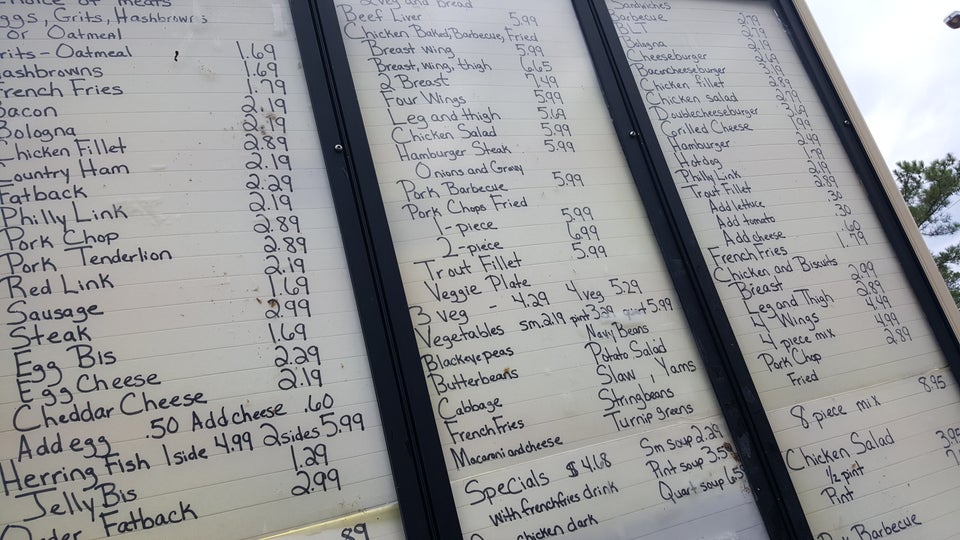 Choice of meats
Eggs, Grits, Hashbrowns
or Oatmeal
Grits-Oatmeal 1.69
Hashbrowns 1.69
French Fries 1.79
Bacon 2.19
Bologna 2.19
Chicken Fillet 2.89
Country Ham 2.19
Fatback 2.29
Philly Link 2.19
Pork Chop 2.89
Pork Tenderlion 2.89
Red Link 2.19
Sausage 1.69
Steak 2.99
Egg Bis 1.69
Egg Cheese 2.29
Cheddar Cheese 2.19
Add egg .50 Add cheese .60
Herring Fish 1side 4.99 2sides 5.99
Jelly Bis 1.29
Order Fatback 2.99
89
2 veg and bread
Beef Liver 5.99
Chicken Baked, Barbecue, Fried
Breast wing 5.99
Breast, wing, thigh 6.65
2 Breast 7.49
Four Wings 5.99
Leg and thigh 5.69
Chicken Salad 5.99
Hamburger Steak 5.99
Onions and Gravy
Pork Barbecue 5.99
Pork Chops Fried
1-piece 5.99
2-piece 6.99
Trout Fillet 5.99
Veggie Plate
3 veg - 4.29 4 veg 5.29
Vegetables sm. 2.19 pint 3.29 quart 5.99
Blackeye peas Navy Beans
Butterbeans Potato Salad
Cabbage Slaw, Yams
French Fries Stringbeans
Macaroni and cheese Turnip greens
Specials $4.68 Sm soup 2.29
with frenchfries drink Pint soup 3.5
chicken dark Quart soup 6.5
Sandwiches
Barbecue 2.79
BLT 2.79
Bologna 2.19
Cheeseburger
Baconcheeseburger
Chicken fillet
Chicken salad
Doublecheeseburger
Grilled Cheese
Hamburger
Hotdog
Philly Link 2.19
Trout Fillet 2.89
Add lettuce .30
Add tomato .30
Add cheese .60
French fries 1.79
Chicken and Biscuits
Breast 2.99
Leg and Thigh 2.89
4 Wings 4.49
4 piece mix 4.99
Pork Chop 2.89
Fried
8 piece mix 8.95
Chicken Salad
1/2 pint 3.95
Pint
Barbecue